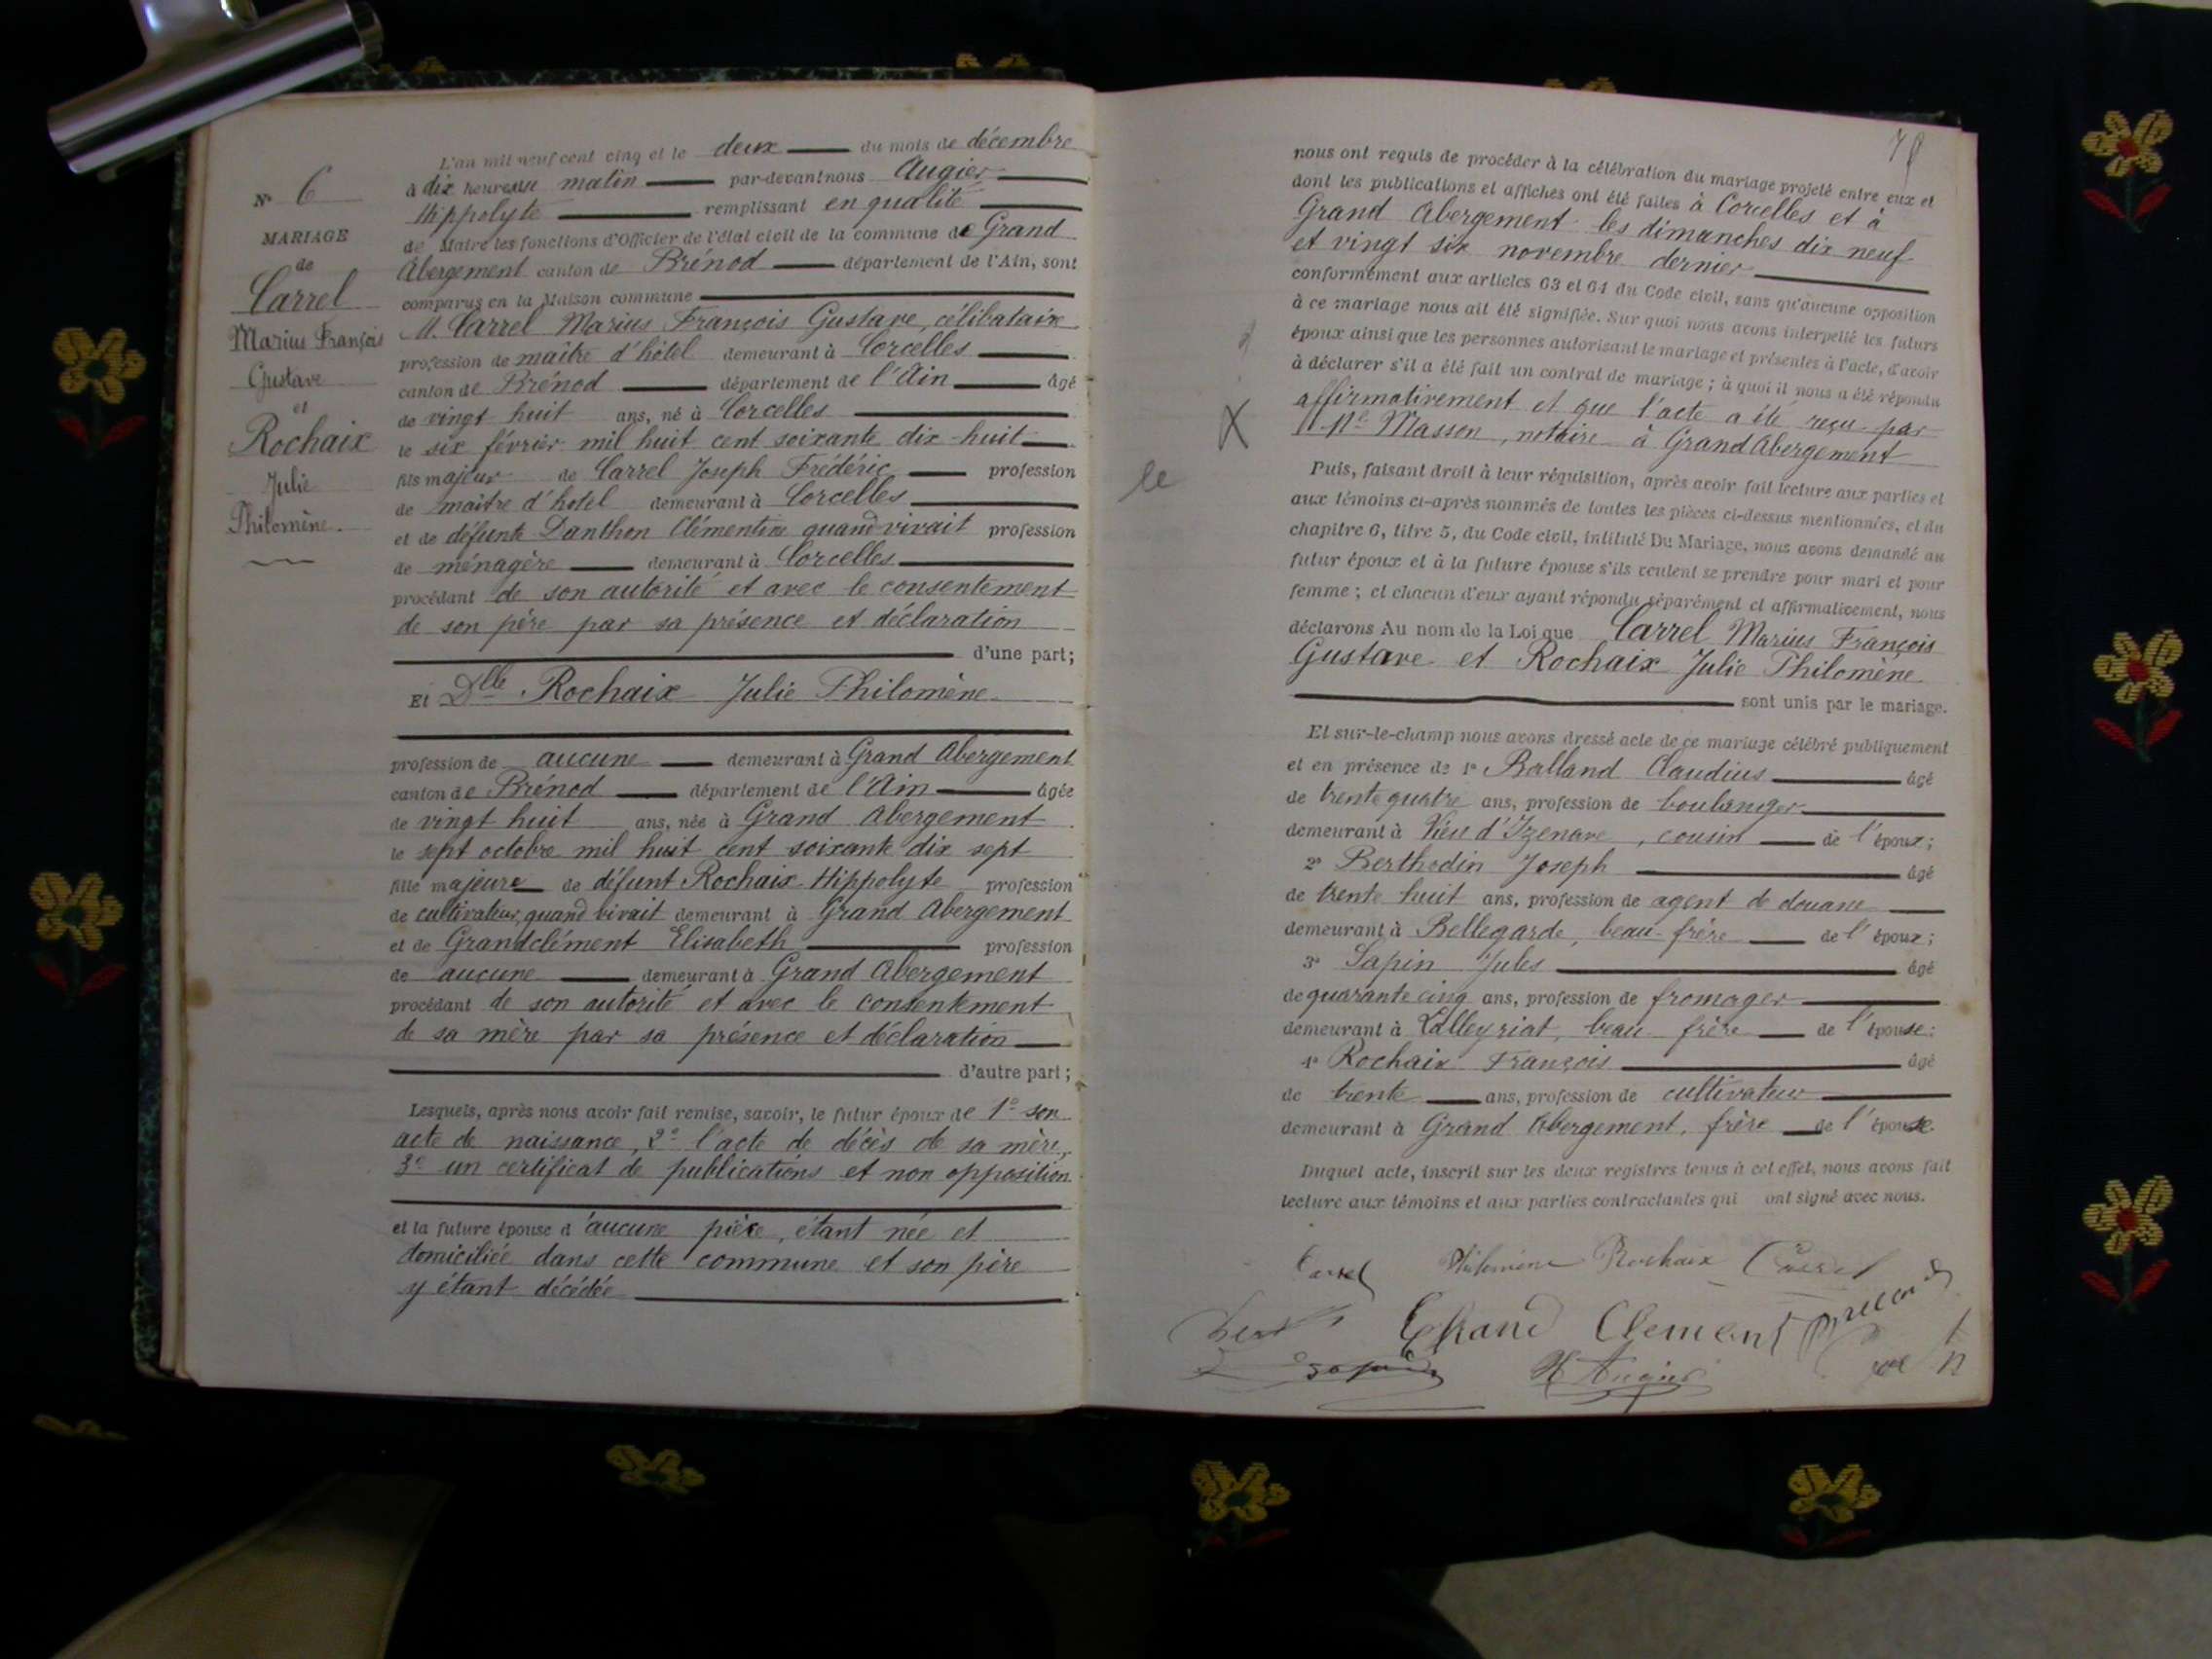 N° 6
MARIAGE
de
Carrel
Marius François
Gustave
et
Rochaix
Julie
Philomène.
L'an mil neuf cent cinq et le deux du mois de décembre
à dix heures du matin par-devant nous Augier
Hippolyte remplissant en qualité
de Maire les fonctions d'Officier de l'état civil de la commune de Grand
Abergement canton de Brénod département de l'Ain, sont
comparus en la Maison commune
M. Carrel Marius François Gustave, célibataire
profession de maître d'hôtel demeurant à Corcelles
canton de Brénod département de l'Ain âgé
de vingt huit ans, né à Corcelles
le six février mil huit cent soixante dix-huit
fils majeur de Carrel Joseph Frédéric profession
de maître d'hotel demeurant à Corcelles
et de défunte Danthon Clémentine quand vivait profession
de ménagère demeurant à Corcelles
procédant de son autorité et avec le consentement
de son père par sa présence et déclaration
d'une part;
Et Dlle Rochaix Julie Philomène
profession de aucune demeurant à Grand Abergement
canton de Brénod département de l'Ain âgée
de vingt huit ans, née à Grand Abergement
le sept octobre mil huit cent soixante dix sept
fille majeure de défunt Rochaix Hippolyte profession
de cultivateur, quand vivait demeurant à Grand Abergement
et de Grandclément Elisabeth profession
de aucune demeurant à Grand Abergement
procédant de son autorité et avec le consentement
de sa mère par sa présence et déclaration
d'autre part;
Lesquels, après nous avoir fait remise, savoir, le futur époux de 1° son
acte de naissance, 2° l'acte de décès de sa mère,
3° un certificat de publications et non opposition
et la future épouse d'aucune pièce, étant née et
domiciliée dans cette commune et son père
y étant décédée
nous ont requis de procéder à la célébration du mariage projeté entre eux et
dont les publications et affiches ont été faites à Corcelles et à
Grand Abergement les dimanches dix neuf
et vingt six novembre dernier
conformément aux articles 63 et 64 du Code civil, sans qu'aucune opposition
à ce mariage nous ait été signifiée. Sur quoi nous avons interpellé les futurs
époux ainsi que les personnes autorisant le mariage et présentes à l'acte, d'avoir
à déclarer s'il a été fait un contrat de mariage; à quoi il nous a été répondu
affirmativement et que l'acte a été reçu par
Me Masson, notaire à Grand Abergement
X
le
Puis, faisant droit à leur réquisition, après avoir fait lecture aux parties et
aux témoins ci-après nommés de toutes les pièces ci-dessus mentionnées, et du
chapitre 6, titre 5, du Code civil, intitulé Du Mariage, nous avons demandé au
futur époux et à la future épouse s'ils veulent se prendre pour mari et pour
femme; et chacun d'eux ayant répondu séparément et affirmativement, nous
déclarons Au nom de la Loi que Carrel Marius François
Gustave et Rochaix Julie Philomène
sont unis par le mariage.
Et sur-le-champ nous avons dressé acte de ce mariage célébré publiquement
et en présence de 1° Balland Claudius âgé
de trente quatre ans, profession de boulanger
demeurant à Vieu d'Izenave, cousin de l'époux;
2° Berthodin Joseph âgé
de trente huit ans, profession de agent de douane
demeurant à Bellegarde, beau-frère de l'époux;
3° Sapin Jules âgé
de quarante cinq ans, profession de fromager
demeurant à Lalleyriat, beau-frère de l'épouse:
4° Rochaix François âgé
de trente ans, profession de cultivateur
demeurant à Grand Abergement, frère de l'épouse.
Duquel acte, inscrit sur les deux registres tenus à cet effet, nous avons fait
lecture aux témoins et aux parties contractantes qui ont signé avec nous.
Carrel Philomène Rochaix Carrel
Grand Clement
Sapin H Augier